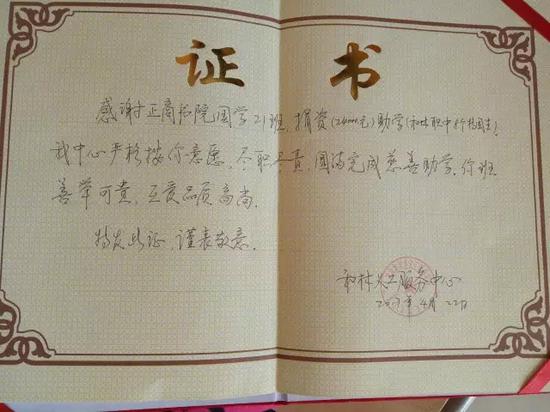 证书
感谢正商书院国学21班,捐资(24000元)助学(和林职中 特困生),
我中心严格按你意愿,尽职尽责,圆满完成慈善助学.你班
善举可贵,互爱品质高尚.
特发此证,谨表敬意.
和林义工服务中心
4月22日